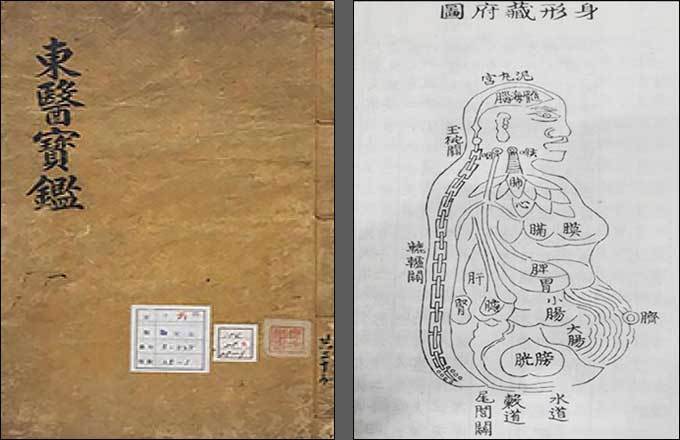 東醫寶鑑
一
身形藏府圖
泥丸宮
髓海腦
玉枕關
咽
喉
肺
心
膈膜
轆轤關
肝
脾
胃
腎
膽
小腸
大腸
臍
膀胱
水道
穀道
尾閭關